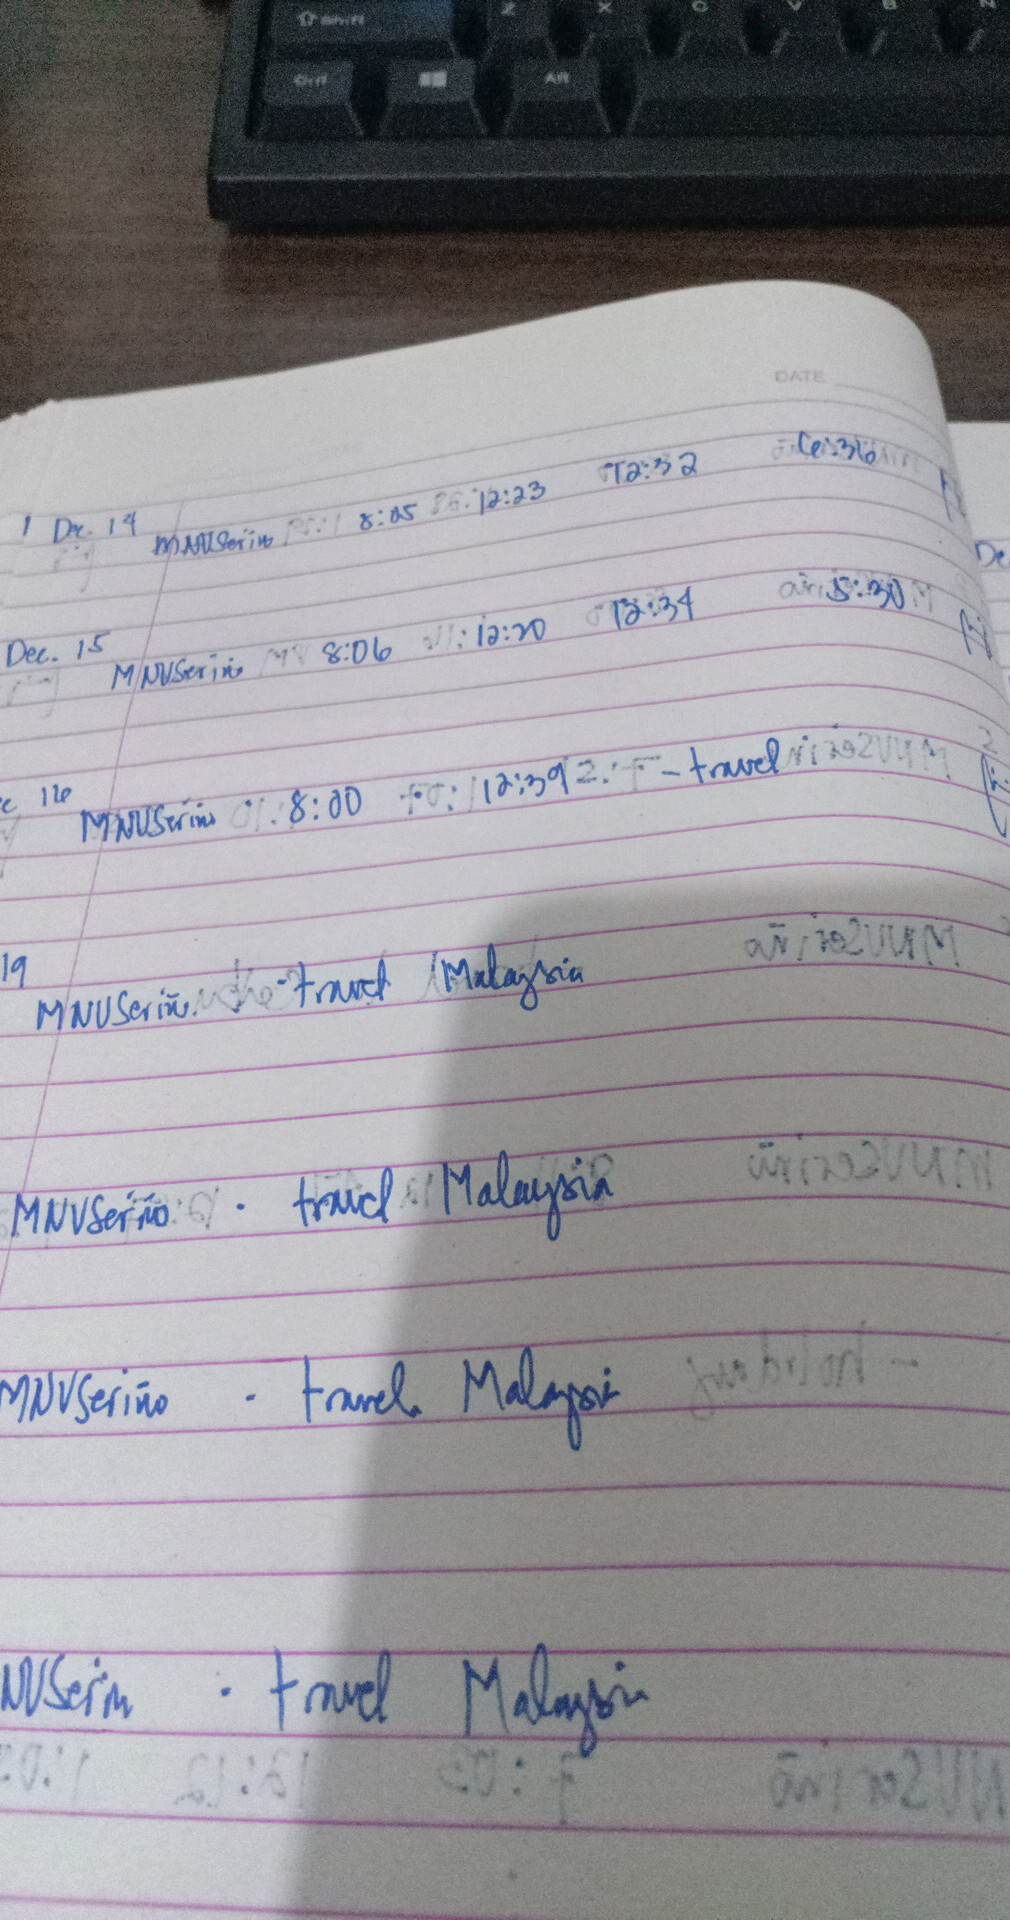 Shift Z X C V B N
Ctrl Alt
DATE
Dec. 14 MNVSeriño 8:05 12:23 12:32 6:36
Dec. 15 MNVSeriño 8:06 12:20 12:34 5:30
c 16 MNVSeriño 8:00 12:39 - travel
19 MNVSeriño - travel Malaysia
MNVSeriño - travel Malaysia
MNVSeriño - travel Malaysi
NVSeriñ - travel Malaysia